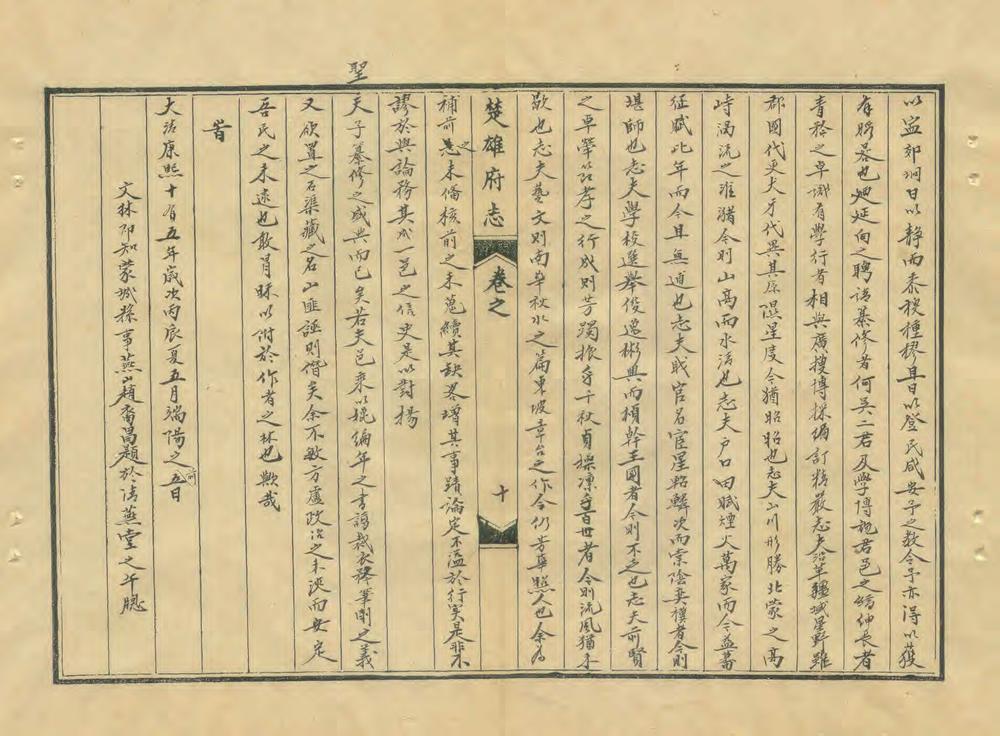 以盜邪坰日以靜而黍稷種穋且日以登民咸安予之教令予亦得以獲
有將畧也廼延向之聘諸纂修者何吳二君及學博說君邑之縉紳長者
青衿之卓犖有學行者相與廣搜博採編訂精嚴志夫沿革疆域星野雖
郡國代更天方代異其原隰星度今猶昭昭也志夫山川形勝北蒙之高
峙渦流之淮豬今則山高而水活也志夫戶口田賦煙火萬家而今益蕃
征賦比年而今且無逋也志夫職官名宦星軺轔次而棠陰奕禩者今則
堪師也志夫學校選舉俊選彬興而楨幹王國者今則不乏也志夫前賢
之車犖節孝之行成則芳躅振乎千秋貞操凜乎百世者今則流風猶未
歇也志夫藝文則南華秋水之篇東坡章台之作今仍芳華照人也余為
楚雄府志 卷之 十
補前之未備核前之未蒐續其缺畧增其事蹟論定不溢於行实是非不
謬於輿論務其成一邑之信史是以對揚
聖
天子纂修之盛典而已矣若夫邑乘以媲編年之書謂裁衣將筆削之義
又欲置之石渠藏之名山匪誣則僭矣余不敏方盧政治之未浹而安定
吾民之未遠也敢冐昧以附於作者之林也歟哉
旹
大清康熙十有五年歲次丙辰夏五月端陽之前五日
文林郎知蒙城縣事燕山趙裔昌題於清燕堂之午牕